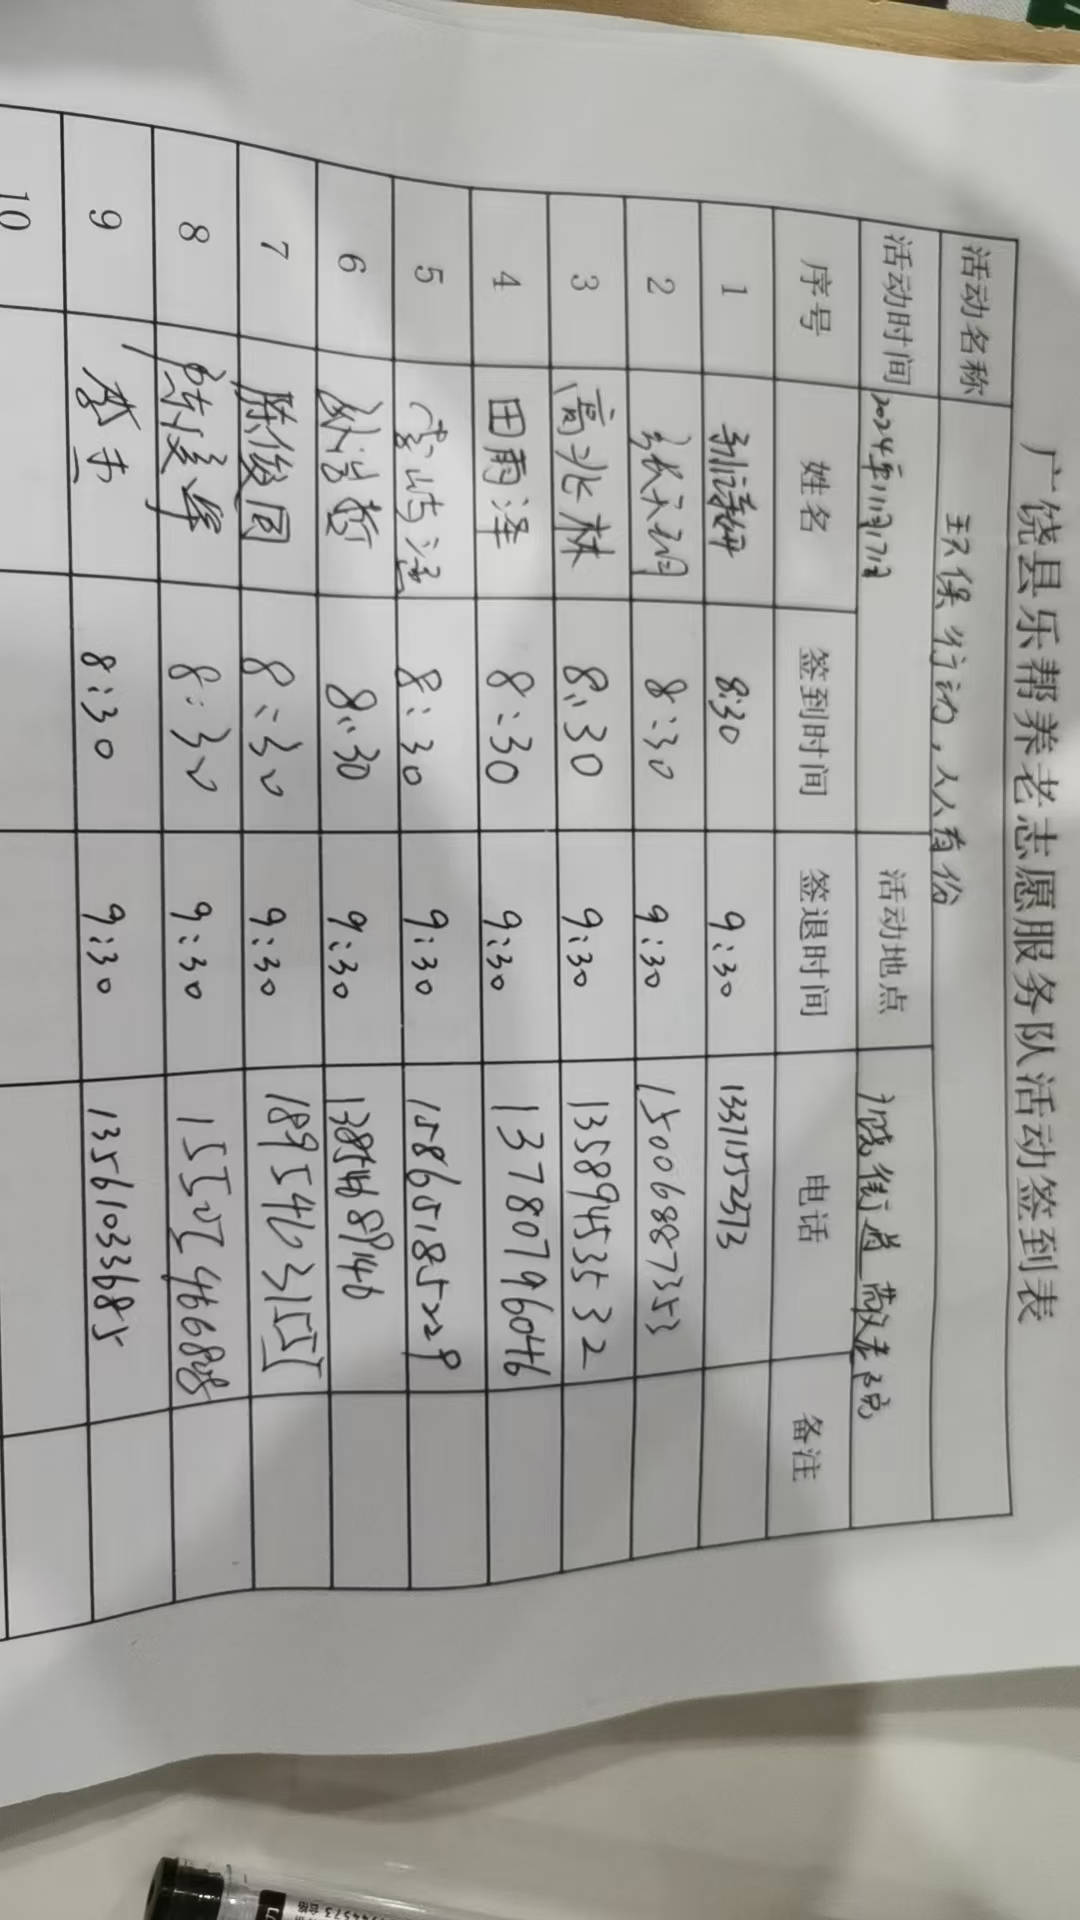 广饶县乐帮养老志愿服务队活动签到表
活动名称 环保行动，人人有份
活动时间 2024年11月17日 活动地点 广饶街道敬老院
序号 姓名 签到时间 签退时间 电话 备注
1 8:30 9:30 13371552373
2 8:30 9:30 15006887353
3 高兆林 8:30 9:30 13589453532
4 田雨泽 8:30 9:30 13780796046
5 8:30 9:30 15865185229
6 8:30 9:30 13854689146
7 陈俊圆 8:30 9:30 18954631555
8 8:30 9:30
9 8:30 9:30 13561033685
10